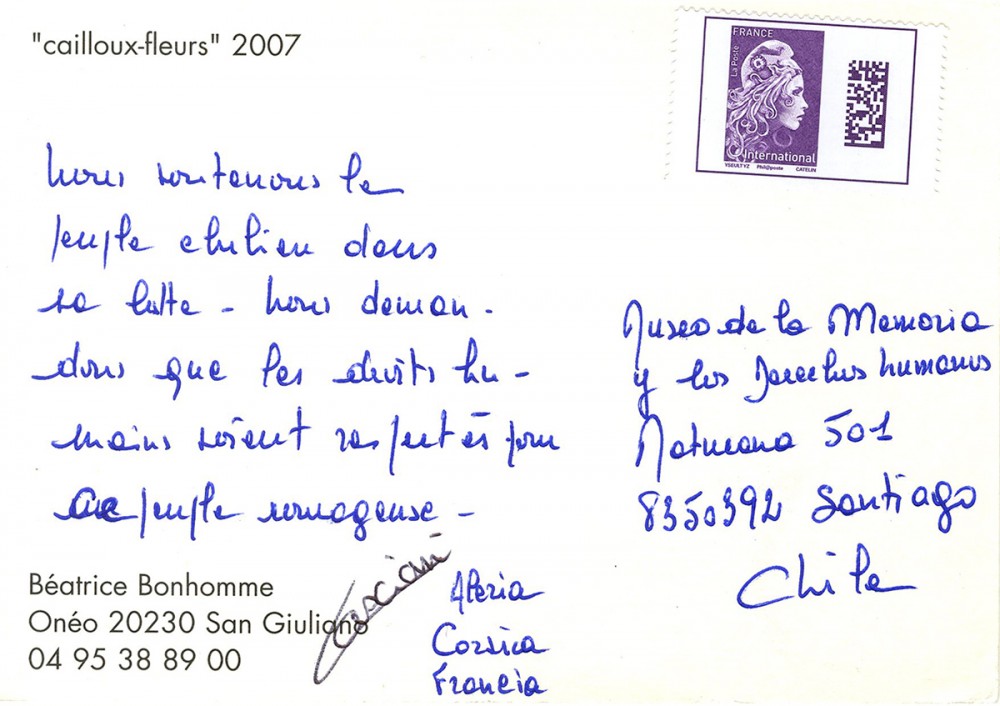 "cailloux-fleurs" 2007
FRANCE
La Poste
International
YSEULT YZ Phil@poste CATELIN
Nous soutenons le
peuple chilien dans
sa lutte - Nous deman -
dons que les droits hu -
mains soient respectés pour
ce peuple courageuse -
Museo de la Memoria
y los Derechos humanos
Matucana 501
8350392 Santiago
Chile
Béatrice Bonhomme
Onéo 20230 San Giuliano
04 95 38 89 00
Casciani
Aleria
Corsica
Francia